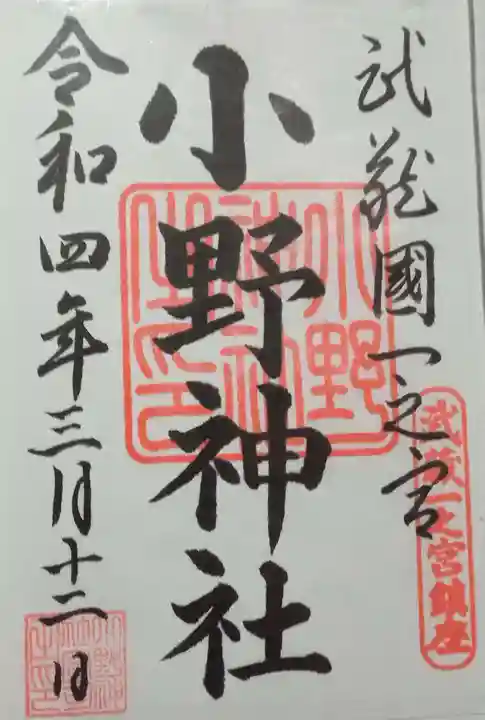 武蔵國一之宮
武蔵一之宮鎮座
小野神社
小野神社之印
令和四年三月十二日